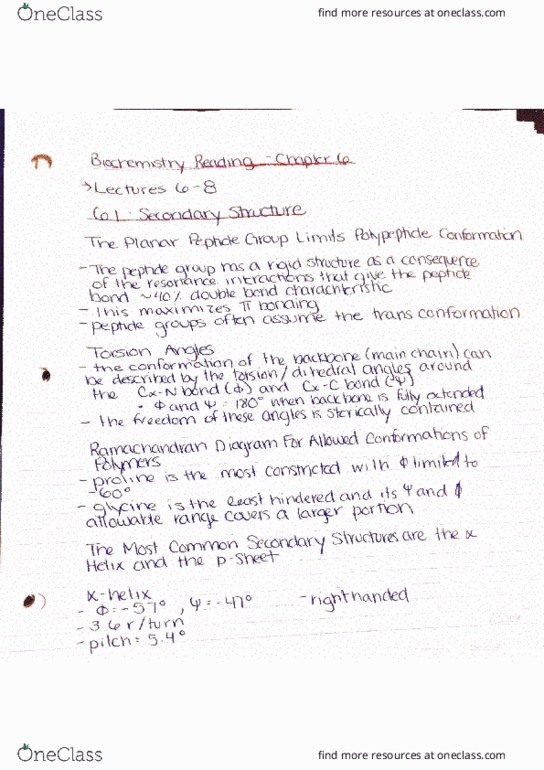 OneClass
find more resources at oneclass.com
Biochemistry Reading - Chapter 6
→ Lectures 6-8
6.1: Secondary Structure
The Planar Peptide Group Limits Polypeptide Conformation
- The peptide group has a rigid structure as a consequence
of the resonance interactions that give the peptide
bond ~40% double bond characteristic
- this maximizes π bonding
- peptide groups often assume the trans conformation
Torsion Angles
- the conformation of the backbone (main chain) can
be described by the torsion/dihedral angles around
the Cα-N bond (ϕ) and Cα-C bond (ψ)
• ϕ and ψ = 180° when backbone is fully extended
- the freedom of these angles is sterically contained
Ramachandran Diagram For Allowed Conformations of
Polymers
- proline is the most constricted with ϕ limited to
-60°
- glycine is the least hindered and its ψ and ϕ
allowable range covers a larger portion
The Most Common Secondary Structures are the α
Helix and the β-Sheet
α-helix
- ϕ = -57°, ψ = -47° - right handed
- 3.6 r/turn
- pitch = 5.4°
OneClass
find more resources at oneclass.com